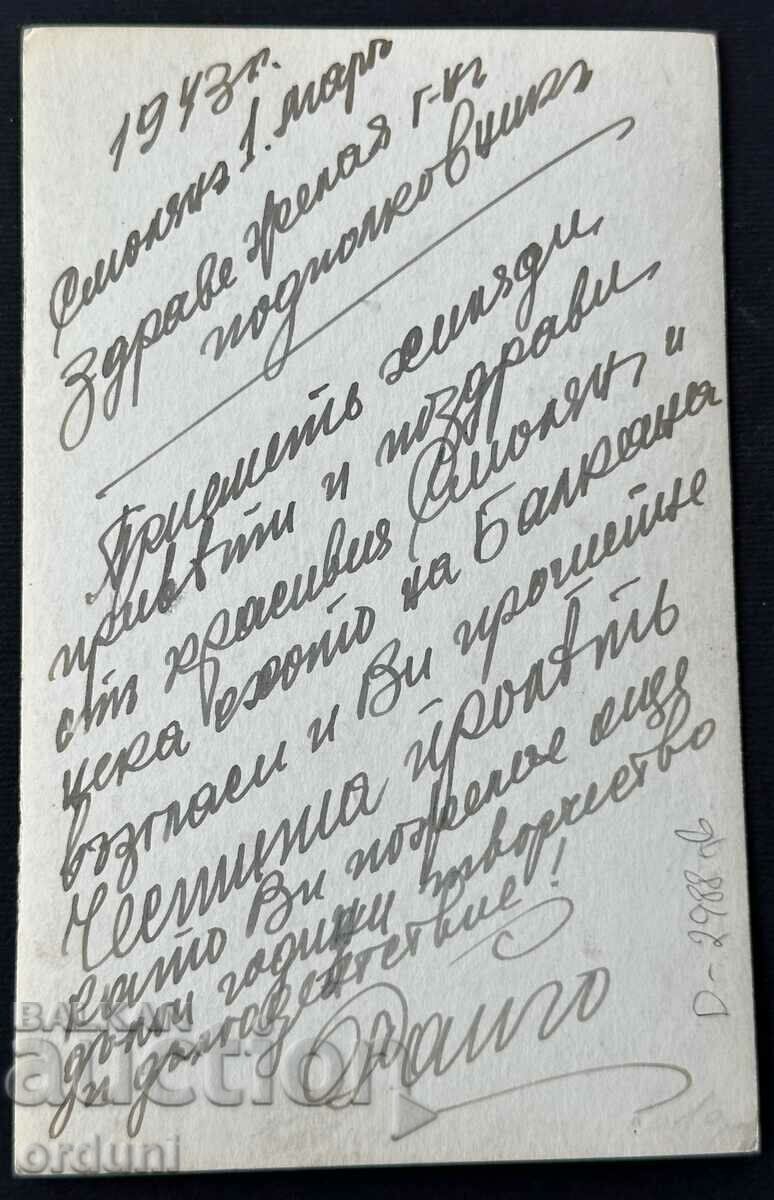 1943 г.
Смолянъ 1. мартъ
Здраве желая г-нъ
подполковникъ
Приемете хиляди
привѣти и поздрави
отъ красивия Смолянъ, и
нека ехото на Балкана
възгласи и Ви прошепне
Честита пролѣть
като Ви пожелая още
дълги години творчество
и дългодействие!
Данго
D-2988 лв
BALKAN
auction
orduni